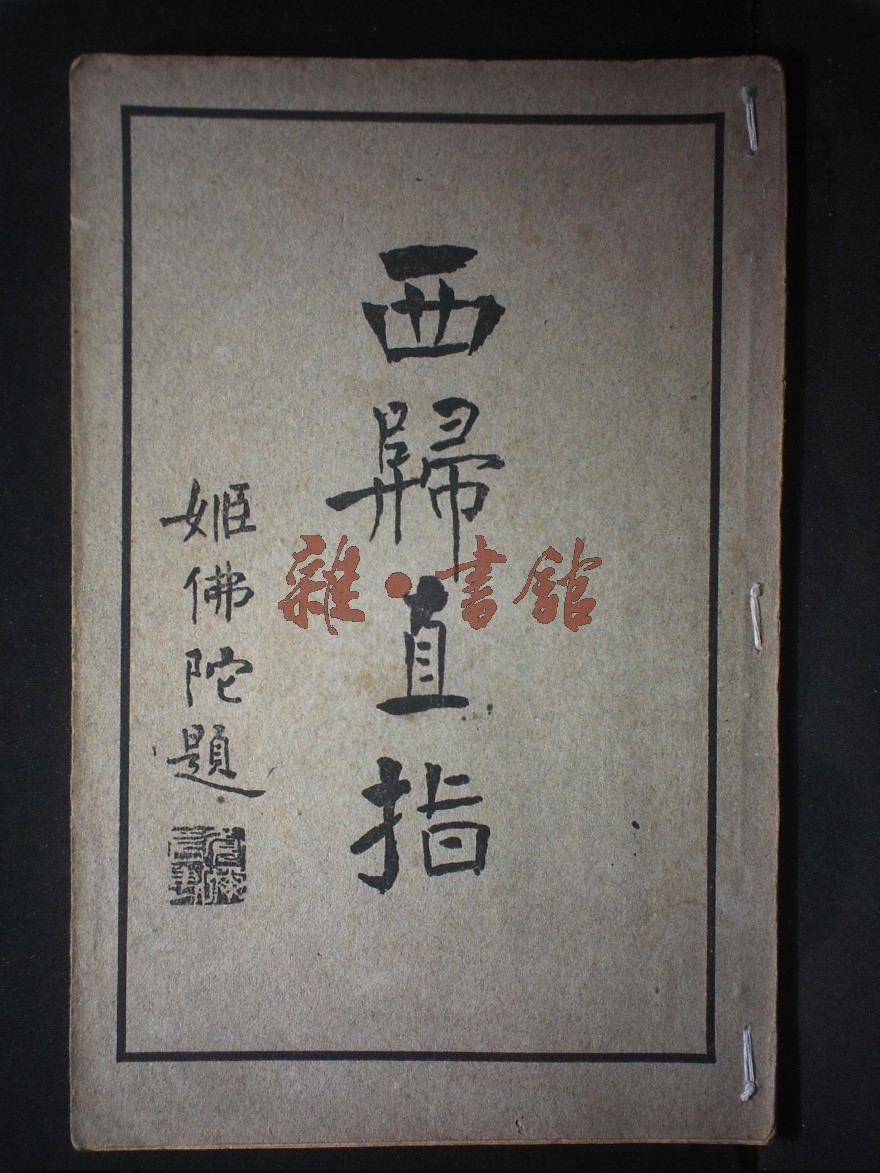 西歸直指
姬佛陀題
雜·書館